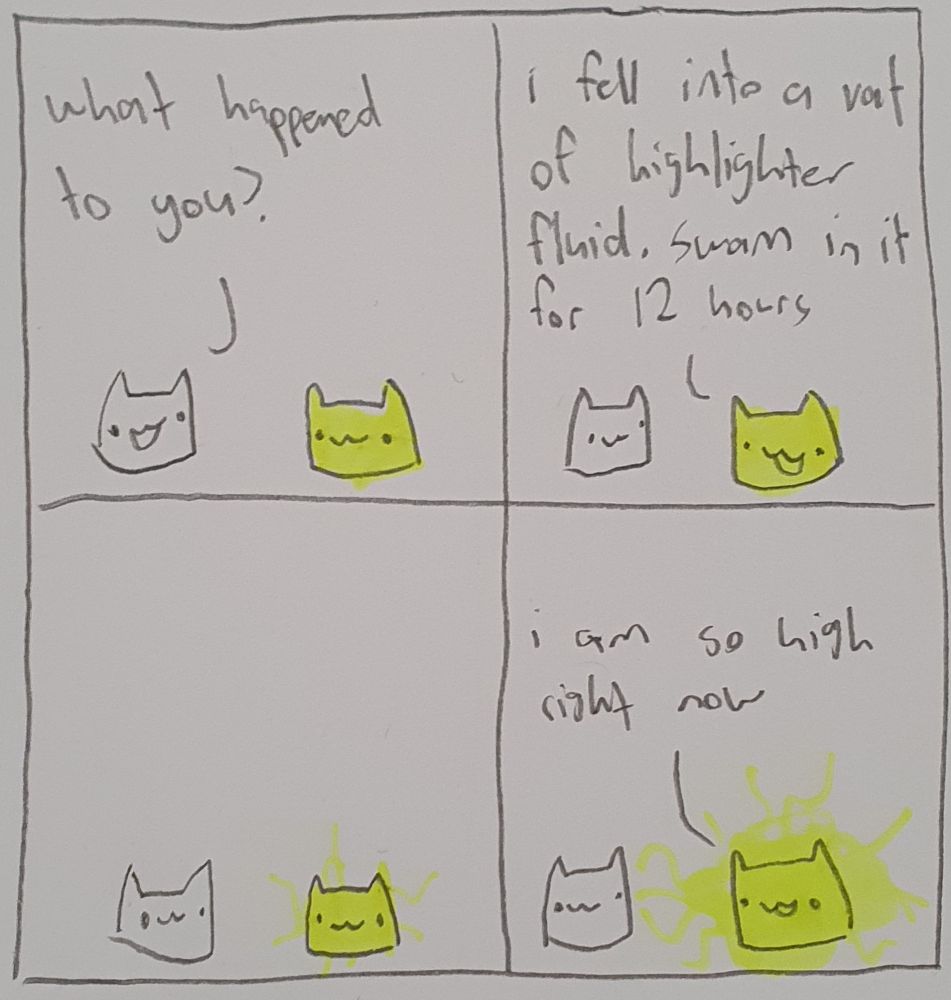 what happened
to you?
i fell into a vat
of highlighter
fluid. swam in it
for 12 hours
i am so high
right now